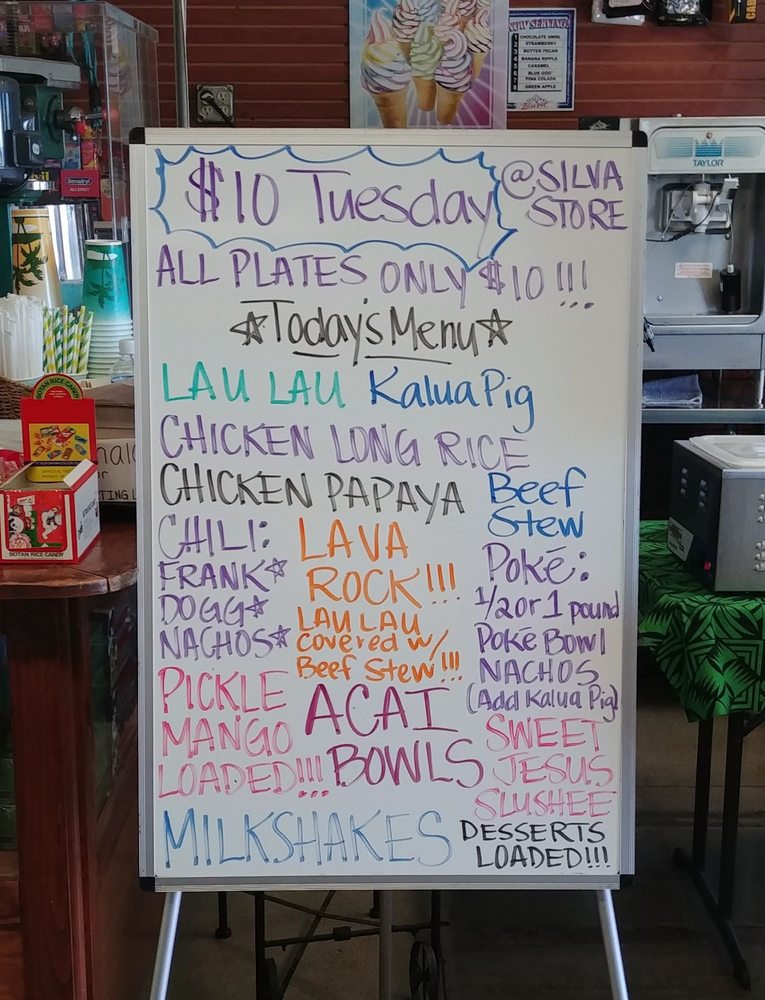 NOW SERVING!
1 CHOCOLATE SWIRL
2 STRAWBERRY
3 BUTTER PECAN
4 BANANA RIPPLE
5 CARAMEL
6 BLUE GOO
7 PINA COLADA
8 GREEN APPLE
TAYLOR
Benadryl
ALLERGY
$10 Tuesday
@SILVA
STORE
ALL PLATES ONLY $10!!!
☆Today's Menu☆
LAU LAU Kalua Pig
CHICKEN LONG RICE
CHICKEN PAPAYA
Beef
Stew
CHILI:
FRANK☆
DOGG☆
NACHOS☆
LAVA
ROCK!!!
LAU LAU
covered w/
Beef Stew!!!
Poké:
1/2 or 1 pound
Poké Bowl
NACHOS
(Add Kalua Pig)
PICKLE
MANGO
LOADED!!!
ACAI
BOWLS
SWEET
JESUS
SLUSHEE
MILKSHAKES
DESSERTS
LOADED!!!
BOTAN RICE CANDY
BOTAN RICE CANDY